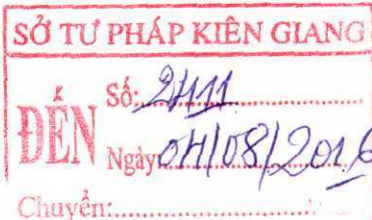 SỞ TƯ PHÁP KIÊN GIANG
ĐẾN
Số: 2411
Ngày 04/08/2016
Chuyển: